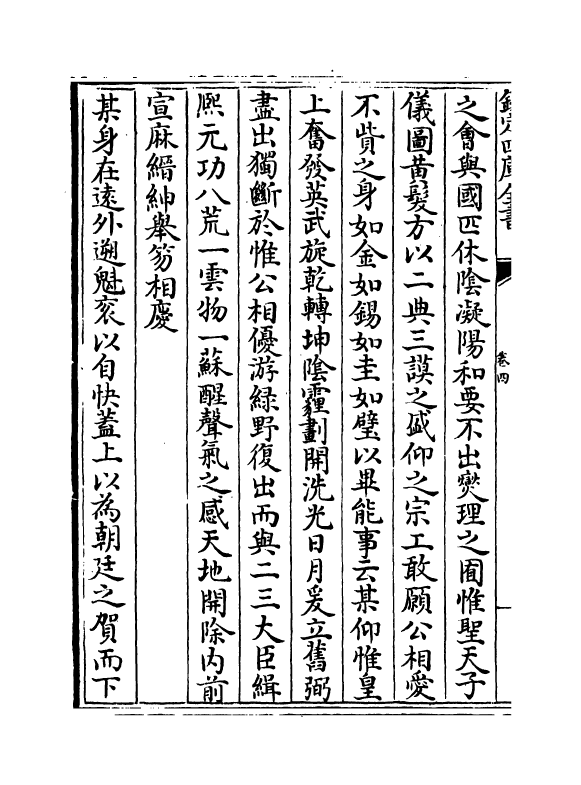 欽定四庫全書
卷四
之會與國匹休陰凝陽和要不出爕理之囿惟聖天子
儀圖黄髮方以二典三謨之盛仰之宗工敢願公相愛
不貲之身如金如錫如圭如璧以畢能事云某仰惟皇
上奮發英武旋乾轉坤陰霾劃開洗光日月爰立舊弼
盡出獨斷於惟公相優游緑野復出而與二三大臣緝
熈元功八荒一雲物一蘇醒聲氣之感天地開除内前
宣麻縉紳舉笏相慶
某身在逺外遡魁衮以自快蓋上以為朝廷之賀而下